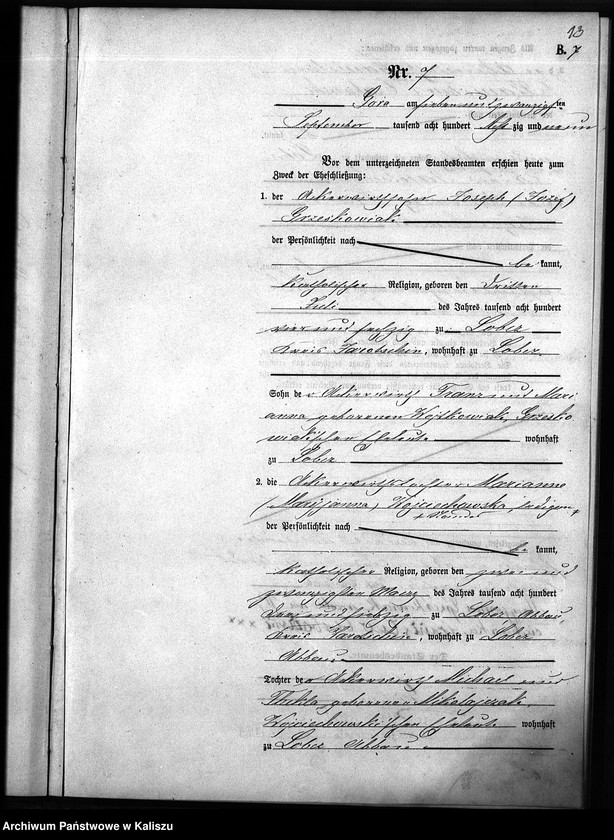 13
B. 7
Nr. 7
Gora am sieben und zwanzigsten
September tausend acht hundert achtzig und neun
Vor dem unterzeichneten Standesbeamten erschien heute zum
Zweck der Eheschließung:
1. der Ackerwirthssohn Joseph (Józef)
Grzeskowiak
der Persönlichkeit nach
be kannt,
katholischer Religion, geboren den dritten
Juli des Jahres tausend acht hundert
vier und sechzig zu Lobez
Kreis Jarotschin, wohnhaft zu Lobez
Sohn der Ackerwirth Franz und Mari
anna geborenen Wojtkowiak, Grzesko
wiakschen Eheleute wohnhaft
zu Lobez
2. die Ackerwirthstochter Marianna
(Maryjanna) Wojciechowska, ledigen
Standes
der Persönlichkeit nach
be kannt,
katholischer Religion, geboren den zwei und
zwanzigsten Maerz des Jahres tausend acht hundert
drei und sechzig zu Lobez Abbau,
Kreis Jarotschin, wohnhaft zu Lobez
Abbau
Tochter der Ackerwirth Michael und
Thekla geborenen Mikolajczak,
Wojciechowski'schen Eheleute wohnhaft
zu Lobez Abbau
Archiwum Państwowe w Kaliszu